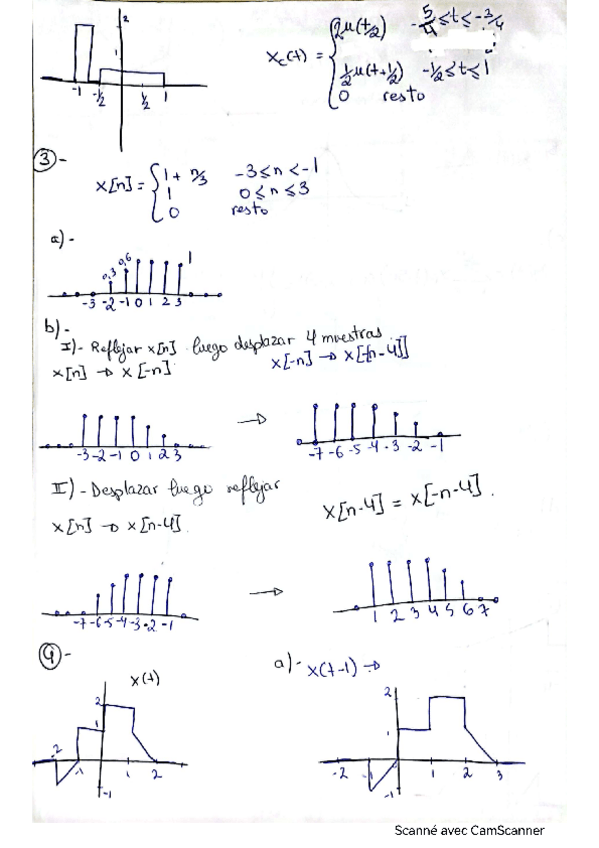 2
1
-1 -1/2 1/2 1
x_c(t) = { 2u(t/2) -5/4 ≤ t ≤ -3/4
1/2 u(t+1/2) -1/2 ≤ t ≤ 1
0 resto
③-
x[n] = { 1 + n/3 -3 ≤ n < -1
1 0 ≤ n ≤ 3
0 resto
a)-
0,3 0,6 1
-3 -2 -1 0 1 2 3
b)-
I)- Reflejar x[n] luego desplazar 4 muestras
x[n] → x[-n] x[-n] → x[-[n-4]]
-3 -2 -1 0 1 2 3 → -7 -6 -5 -4 -3 -2 -1
II)- Desplazar luego reflejar
x[n] → x[n-4] x[n-4] = x[-n-4].
-7 -6 -5 -4 -3 -2 -1 → 1 2 3 4 5 6 7
④-
x(t) a)- x(t-1) →
2 2
1 1
-2 -1 1 2 -2 -1 1 2 3
-1 -1
Scanné avec CamScanner